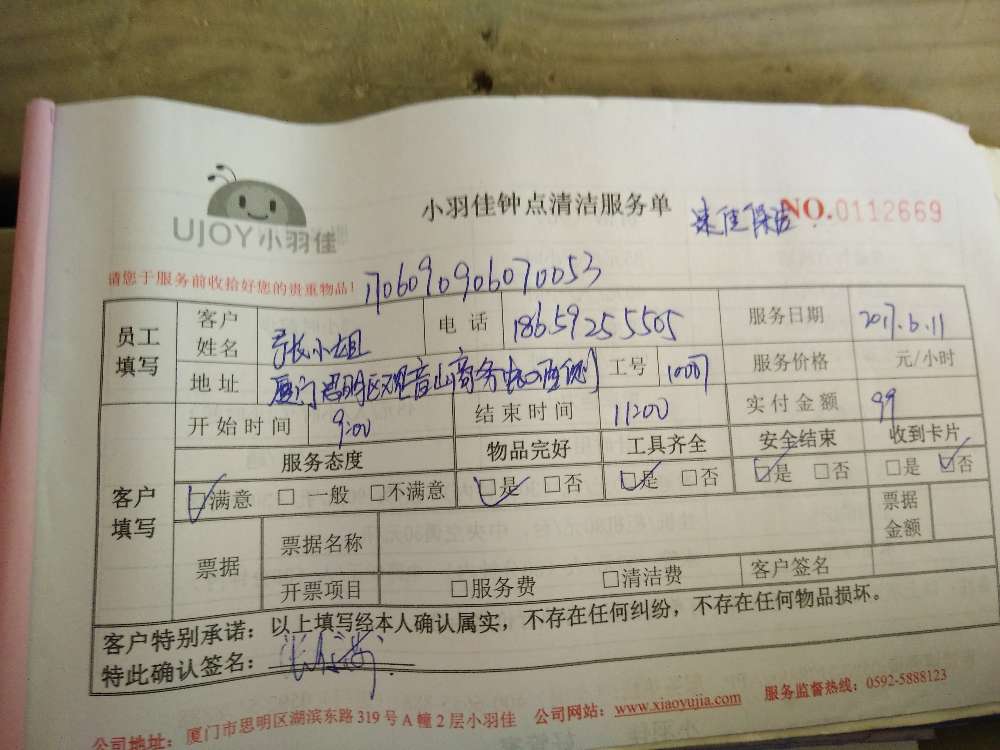 UJOY小羽佳
小羽佳钟点清洁服务单
NO.0112669
请您于服务前收拾好您的贵重物品!
170609096070053
员工填写 客户姓名 张小姐 电话 18659255505 服务日期 2017.6.11
地址 厦门思明区观音山商务中心 工号 服务价格 元/小时
开始时间 9:00 结束时间 11:00 实付金额 99
客户填写 服务态度 物品完好 工具齐全 安全结束 收到卡片
☑满意 □一般 □不满意 ☑是 □否 ☑是 □否 ☑是 □否 □是 ☑否
票据 票据名称 票据金额
开票项目 □服务费 □清洁费 客户签名
客户特别承诺：以上填写经本人确认属实，不存在任何纠纷，不存在任何物品损坏。
特此确认签名：
公司地址：厦门市思明区湖滨东路319号A幢2层小羽佳 公司网站：www.xiaoyujia.com 服务监督热线：0592-5888123